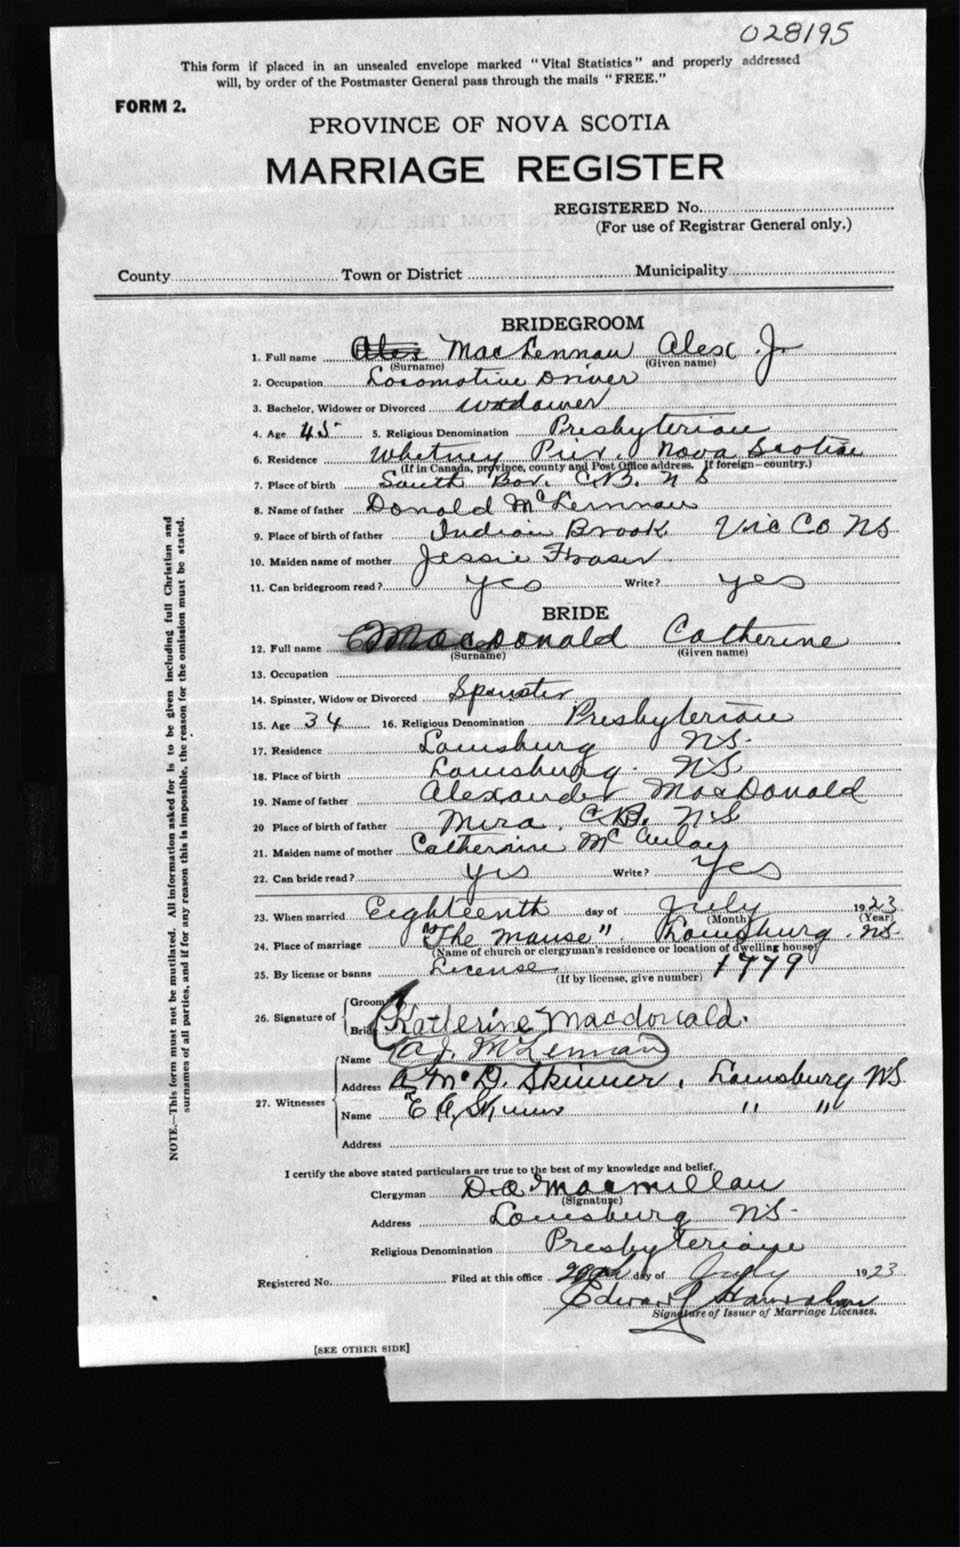 028195
This form if placed in an unsealed envelope marked "Vital Statistics" and properly addressed
will, by order of the Postmaster General pass through the mails "FREE."
FORM 2.
PROVINCE OF NOVA SCOTIA
MARRIAGE REGISTER
REGISTERED No.
(For use of Registrar General only.)
County Town or District Municipality
BRIDEGROOM
1. Full name Alex MacLennan Alex J.
(Surname) (Given name)
2. Occupation Locomotive Driver
3. Bachelor, Widower or Divorced Widower
4. Age 45 5. Religious Denomination Presbyterian
6. Residence Whitney Pier, Nova Scotia
(If in Canada, province, county and Post Office address. If foreign—country.)
7. Place of birth South Bar. C.B. N S
8. Name of father Donald McLennan
9. Place of birth of father Indian Brook Vic Co NS
10. Maiden name of mother Jessie Fraser
11. Can bridegroom read? yes Write? yes
BRIDE
12. Full name MacDonald Catherine
(Surname) (Given name)
13. Occupation
14. Spinster, Widow or Divorced Spinster
15. Age 34 16. Religious Denomination Presbyterian
17. Residence Louisburg NS.
18. Place of birth Louisburg. NS.
19. Name of father Alexander MacDonald
20 Place of birth of father Mira. C.B. N.S
21. Maiden name of mother Catherine McAulay
22. Can bride read? yes Write? Yes
23. When married Eighteenth day of July 1923
(Month) (Year)
24. Place of marriage "The Manse". Louisburg. NS.
(Name of church or clergyman's residence or location of dwelling house)
25. By license or banns License (If by license, give number) 1779
26. Signature of Groom
Bride Katherine Macdonald.
27. Witnesses
Name A J. McLennan
Address A McD. Skinner, Louisburg NS
Name E A Skinner " "
Address
I certify the above stated particulars are true to the best of my knowledge and belief.
Clergyman D.A. Macmillan
(Signature)
Address Louisburg NS.
Religious Denomination Presbyterian
Registered No. Filed at this office 20th day of July 1923
Edward Hanrahan
Signature of Issuer of Marriage Licenses.
[SEE OTHER SIDE]
NOTE.—This form must not be mutilated. All information asked for is to be given including full Christian and
surnames of all parties, and if for any reason this is impossible, the reason for the omission must be stated.